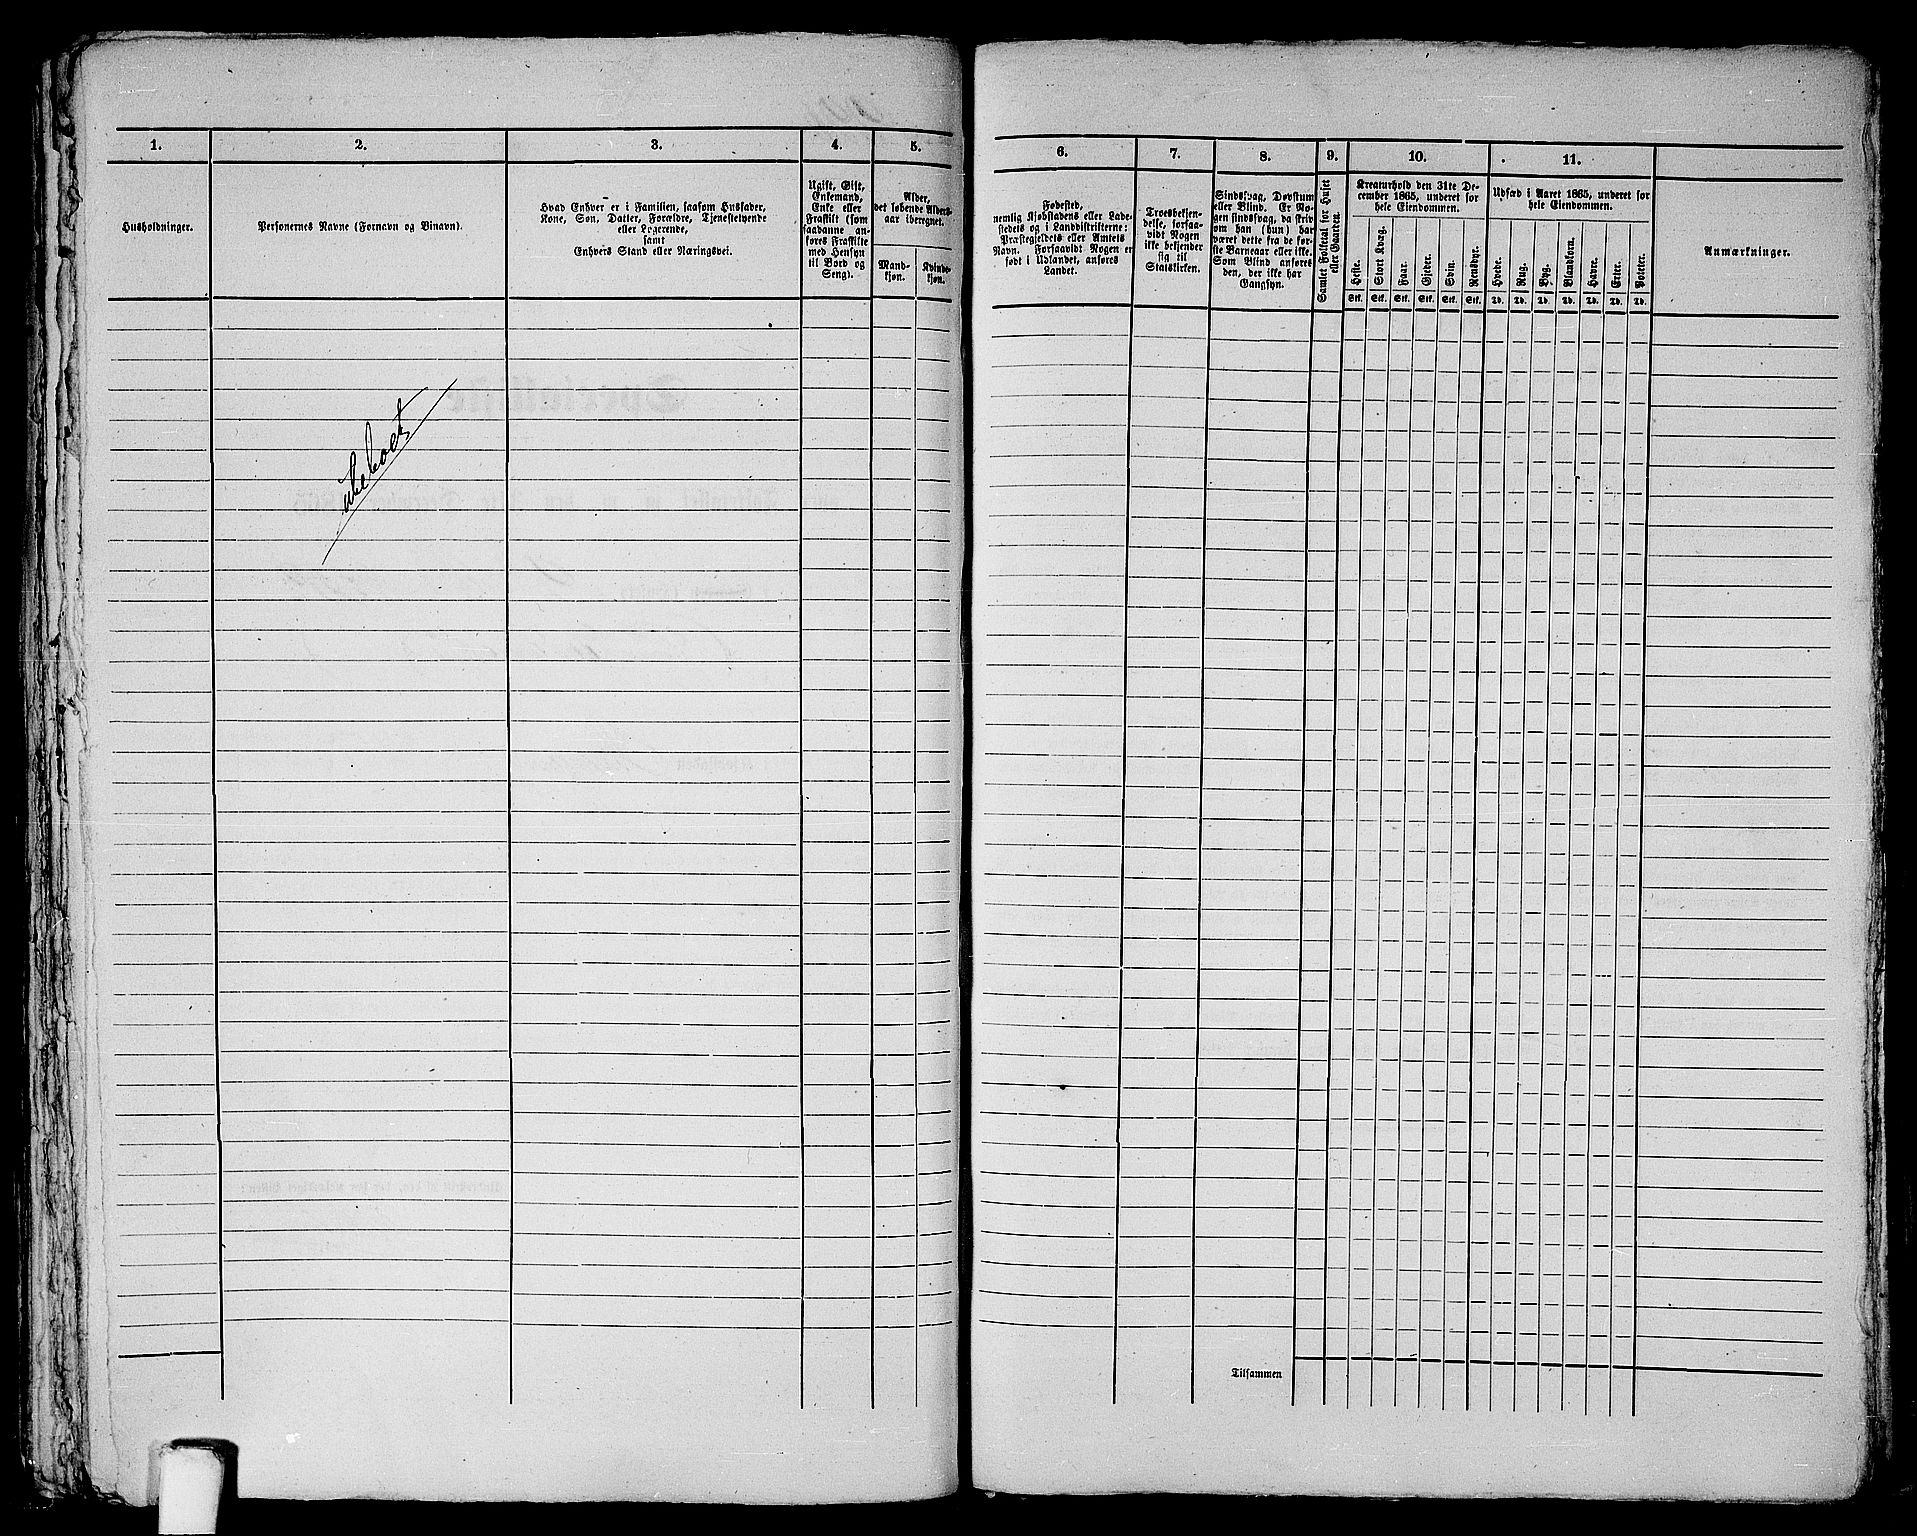 1.
2.
3.
4.
5.
Husholdninger.
Personernes Navne (Fornavn og Binavn).
Hvad Enhver er i Familien, saasom Husfader,
Kone, Søn, Datter, Forældre, Tjenestetyende
eller Logerende,
samt
Enhvers Stand eller Næringsvei.
Ugift, Gift,
Enkemand,
Enke eller
Fraskilt (som
saadanne an-
føres Fraskilte
med Hensyn
til Bord og
Seng).
Alder,
det løbende Alders-
aar iberegnet.
Mand-
kjøn.
Kvinde-
kjøn.
ubeboet
6.
7.
8.
9.
10.
11.
Fødested,
nemlig Kjøbstadens eller Lade-
stedets og i Landdistrikterne:
Præstegjeldets eller Amtets
Navn. Forsaavidt Nogen er
født i Udlandet, anføres
Landet.
Troesbekjen-
delse, forsaa-
vidt Nogen
ikke bekjender
sig til
Statskirken.
Sindssvag, Døvstum
eller Blind. Er No-
gen sindssvag, da skriv
om han (hun) har
været dette fra de før-
ste Barneaar eller ikke.
Som Blind anføres
den, der ikke har
Gangsyn.
Samlet Folketal for Huset
eller Gaarden.
Kreaturhold den 31te De-
cember 1865, underet for
hele Eiendommen.
Heste.
Stort Kvæg.
Faar.
Gjeder.
Svin.
Rensdyr.
Stk. Stk. Stk. Stk. Stk. Stk.
Udsæd i Aaret 1865, underet for
hele Eiendommen.
Hvede.
Rug.
Byg.
Blandkorn.
Havre.
Erter.
Poteter.
Td. Td. Td. Td. Td. Td. Td.
Anmærkninger.
Tilsammen